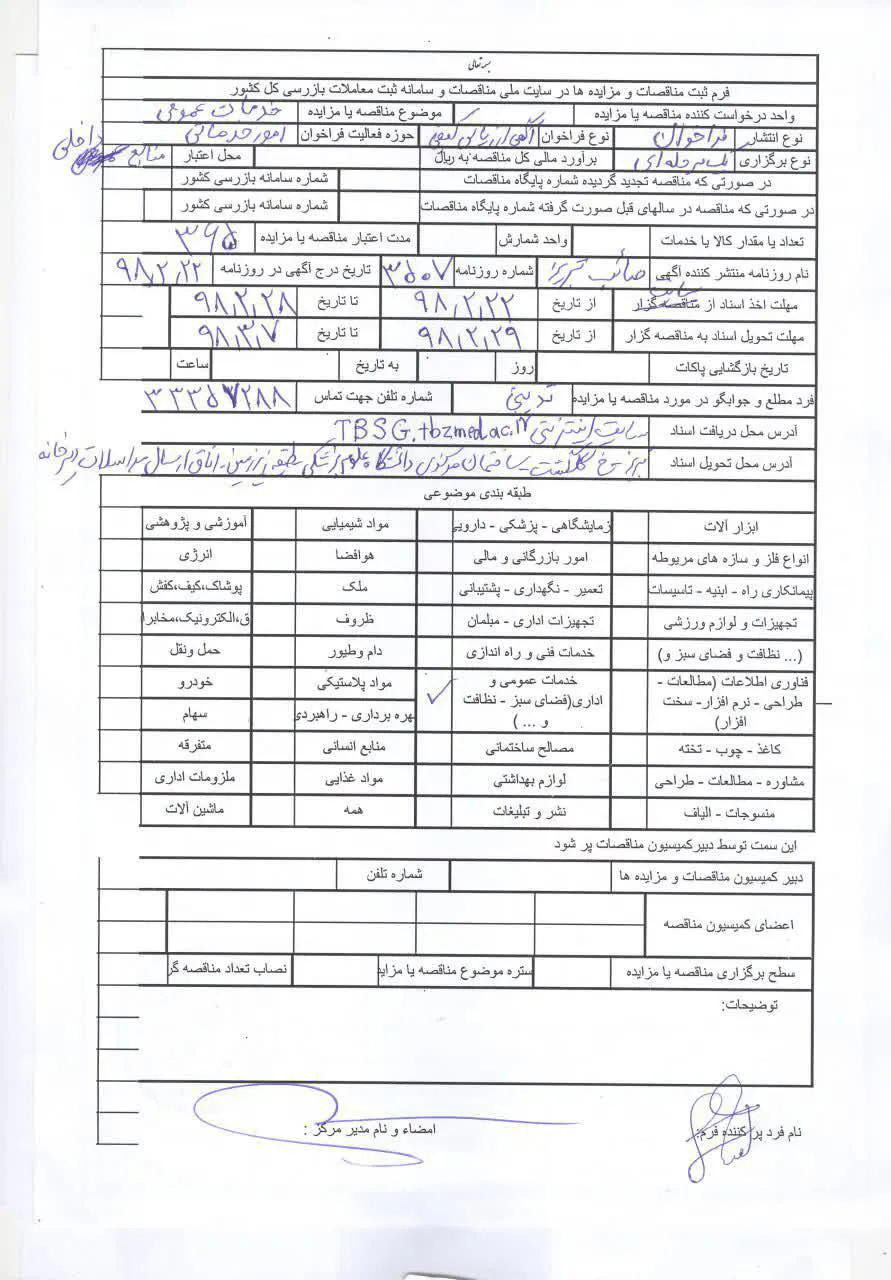 بسمه تعالی
فرم ثبت مناقصات و مزایده ها در سایت ملی مناقصات و سامانه ثبت معاملات بازرسی کل کشور
واحد درخواست کننده مناقصه یا مزایده موضوع مناقصه یا مزایده خدمات عمومی
نوع انتشار فراخوان نوع فراخوان آگهی ارزیابی کیفی حوزه فعالیت فراخوان امور خدماتی
نوع برگزاری یک مرحله ای برآورد مالی کل مناقصه به ریال محل اعتبار منابع داخلی
در صورتی که مناقصه تجدید گردیده شماره پایگاه مناقصات شماره سامانه بازرسی کشور
در صورتی که مناقصه در سالهای قبل صورت گرفته شماره پایگاه مناقصات شماره سامانه بازرسی کشور
تعداد یا مقدار کالا یا خدمات واحد شمارش مدت اعتبار مناقصه یا مزایده ۳۶۵
نام روزنامه منتشر کننده آگهی صائب تبریز شماره روزنامه ۳۵۰۷ تاریخ درج آگهی در روزنامه ۹۸,۲,۲۲
مهلت اخذ اسناد از مناقصه گزار سایت از تاریخ ۹۸,۲,۲۲ تا تاریخ ۹۸,۲,۲۸
مهلت تحویل اسناد به مناقصه گزار از تاریخ ۹۸,۲,۲۹ تا تاریخ ۹۸,۳,۷
تاریخ بازگشایی پاکات روز به تاریخ ساعت
فرد مطلع و جوابگو در مورد مناقصه یا مزایده شماره تلفن جهت تماس ۳۳۳۵۷۲۸۸
آدرس محل دریافت اسناد سایت اینترنتی TBSG.tbzmed.ac.ir
آدرس محل تحویل اسناد تبریز گلگشت - ساختمان مرکزی دانشگاه علوم پزشکی طبقه زیرزمین - اتاق ارسال مراسلات دبیرخانه
طبقه بندی موضوعی
ابزار آلات زمایشگاهی - پزشکی - دارویی مواد شیمیایی آموزشی و پژوهشی
انواع فلز و سازه های مربوطه امور بازرگانی و مالی هوافضا انرژی
پیمانکاری راه - ابنیه - تاسیسات تعمیر - نگهداری - پشتیبانی ملک پوشاک،کیف،کفش
تجهیزات و لوازم ورزشی تجهیزات اداری - مبلمان ظروف ق،الکترونیک،مخابرا
(... نظافت و فضای سبز و) خدمات فنی و راه اندازی دام وطیور حمل ونقل
فناوری اطلاعات (مطالعات - خدمات عمومی و مواد پلاستیکی خودرو
طراحی - نرم افزار- سخت اداری(فضای سبز - نظافت ✓ هره برداری - راهبردی سهام
افزار) و ... )
کاغذ - چوب - تخته مصالح ساختمانی منابع انسانی متفرقه
مشاوره - مطالعات - طراحی لوازم بهداشتی مواد غذایی ملزومات اداری
منسوجات - الیاف نشر و تبلیغات همه ماشین آلات
این سمت توسط دبیر کمیسیون مناقصات پر شود
دبیر کمیسیون مناقصات و مزایده ها شماره تلفن
اعضای کمیسیون مناقصه
سطح برگزاری مناقصه یا مزایده ستره موضوع مناقصه یا مزاید نصاب تعداد مناقصه گر
توضیحات:
نام فرد پر کننده فرم: امضاء و نام مدیر مرکز :